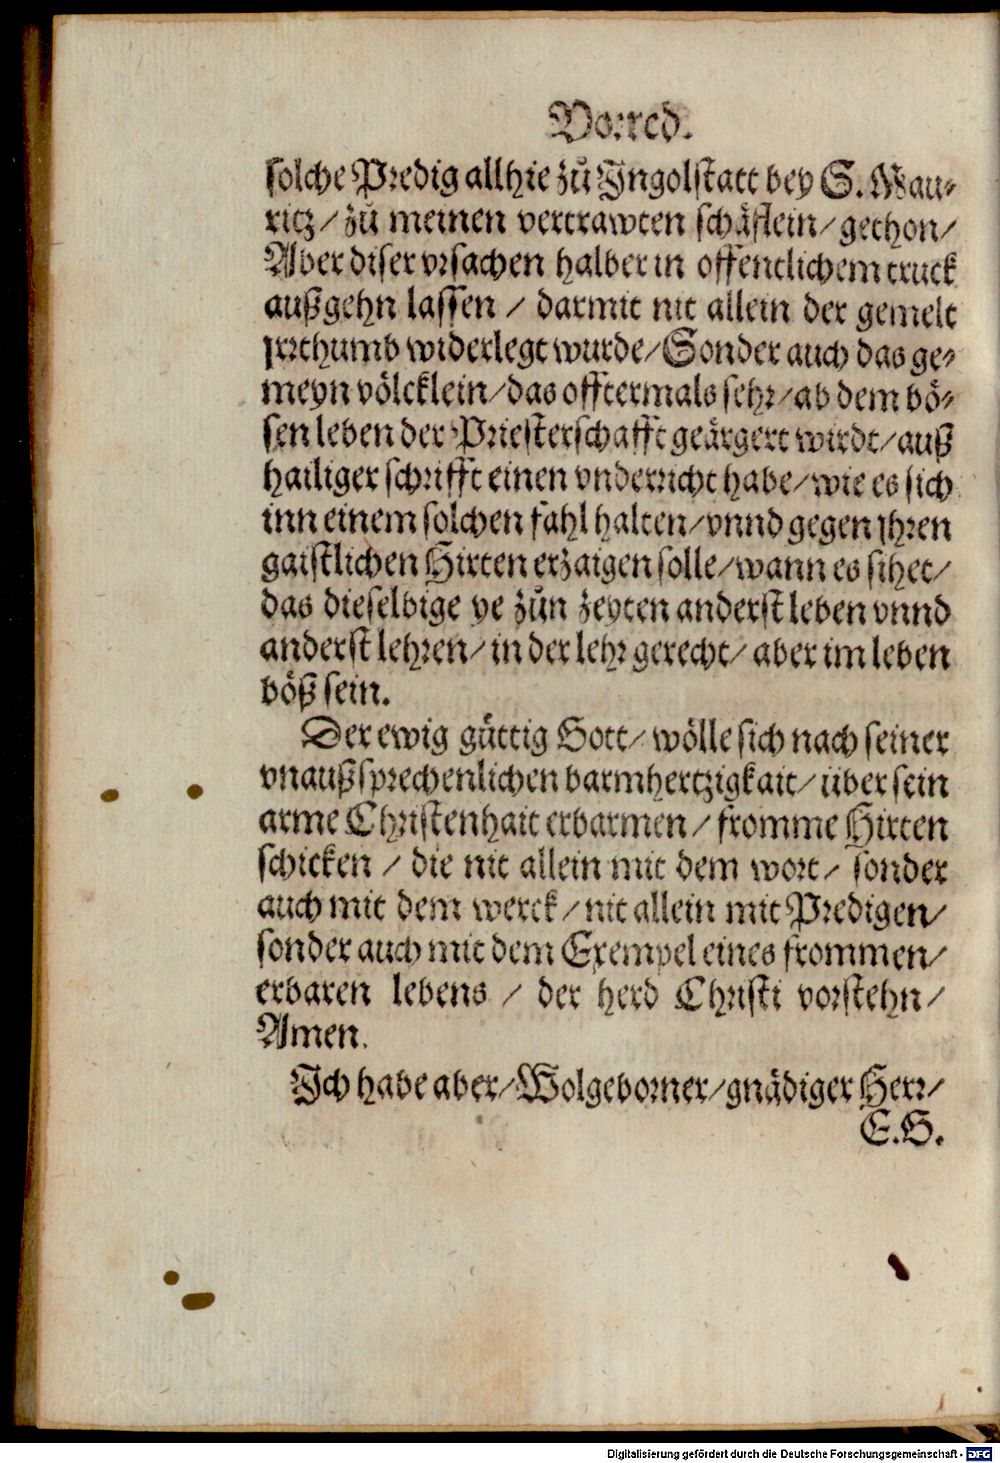 Vorred.
solche Predig allhie zů Ingolstatt bey S. Mau-
ritz / zů meinen vertrawten schäflein / gethon /
Aber diser vrsachen halber in offentlichem truck
außgehn lassen / darmit nit allein der gemelt
jrrthumb widerlegt wurde / Sonder auch das ge-
meyn völcklein / das offtermals sehr / ab dem bö-
sen leben der Priesterschafft geärgert wirdt / auß
hailiger schrifft einen vnderricht habe / wie es sich
inn einem solchen fahl halten / vnnd gegen jhren
gaistlichen Hirten erzaigen solle / wann es sihet /
das dieselbige ye zůn zeyten anderst leben vnnd
anderst lehren / in der lehr gerecht / aber im leben
böß sein.
Der ewig güttig Gott / wölle sich nach seiner
vnaußsprechenlichen barmhertzigkait / über sein
arme Christenhait erbarmen / fromme Hirten
schicken / die nit allein mit dem wort / sonder
auch mit dem werck / nit allein mit Predigen /
sonder auch mit dem Exempel eines frommen /
erbaren lebens / der herd Christi vorstehn /
Amen.
Ich habe aber / Wolgeborner / gnädiger Herr /
E.G.
Digitalisierung gefördert durch die Deutsche Forschungsgemeinschaft - DFG